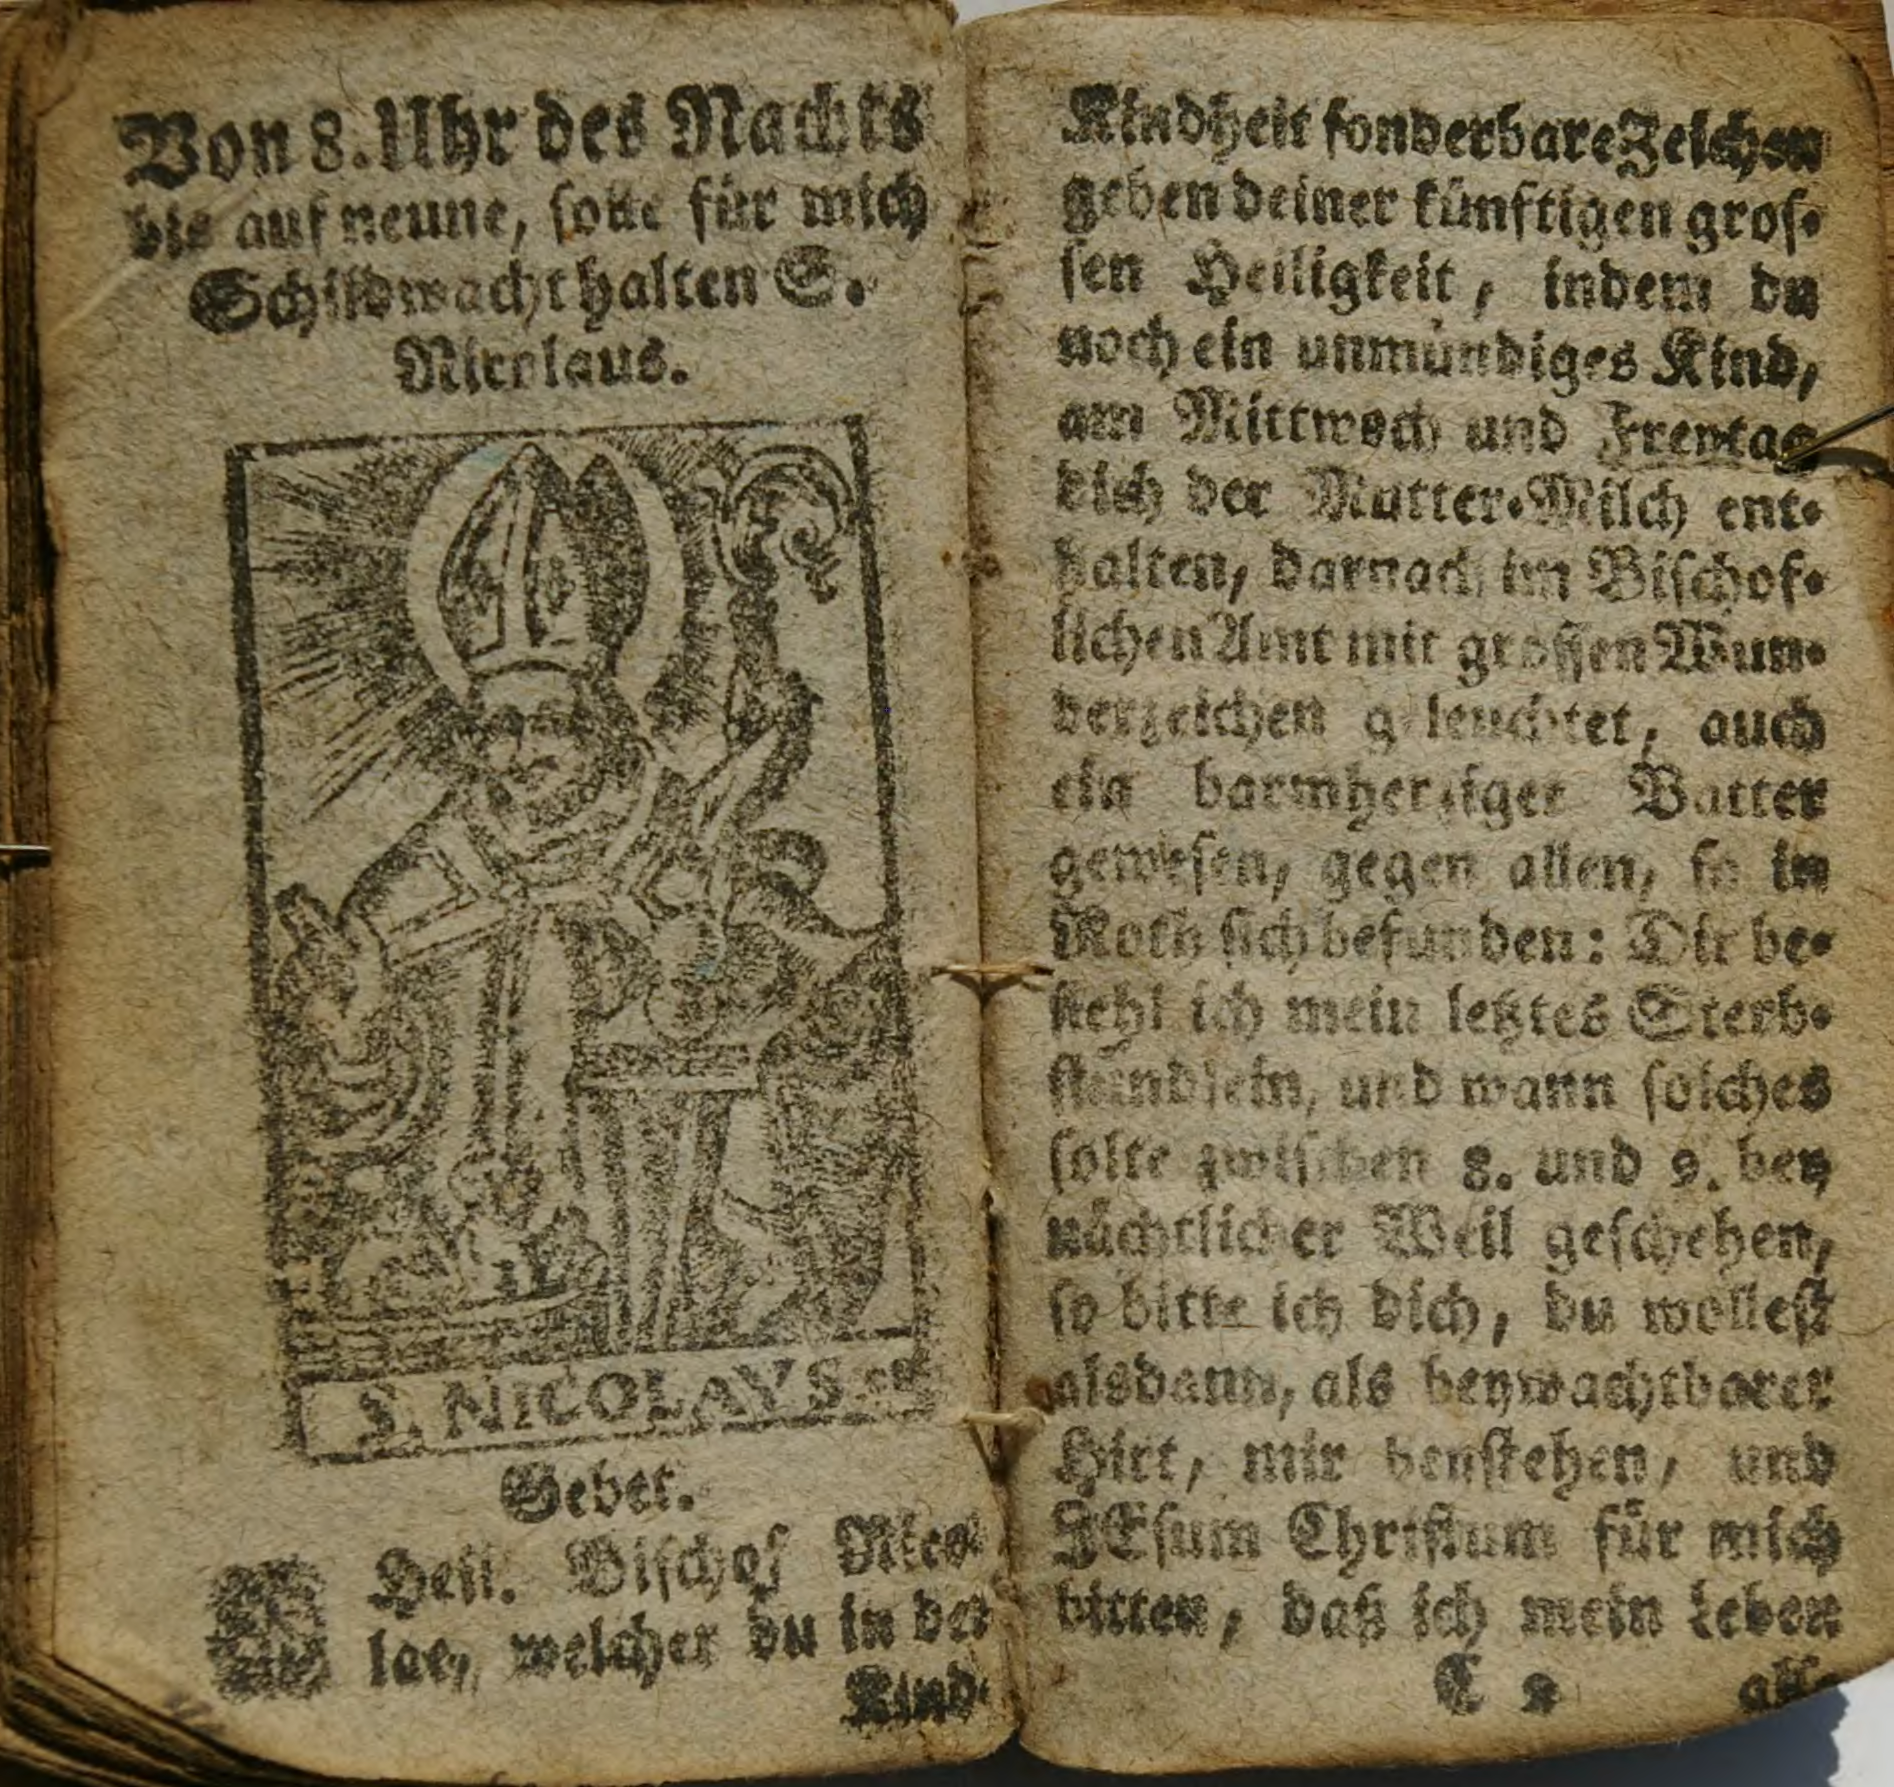 Von 8. Uhr des Nachts
bis auf neune, solle für mich
Schildwacht halten S.
Nicolaus.
S. NICOLAVS.
Gebet.
Heil. Bischof Nico-
lae, welcher du in der
Kind-
Kindheit sonderbare Zeichen
geben deiner künftigen gros-
sen Heiligkeit, indem du
noch ein unmündiges Kind,
am Mittwoch und Freytag
dich der Mutter-Milch ent-
halten, darnach im Bischof-
lichen Amt mit grossen Wun-
derzeichen geleuchtet, auch
ein barmherziger Vatter
gewesen, gegen allen, so in
Noth sich befunden: Dir be-
fiehl ich mein letztes Sterb-
stündlein, und wann solches
solte zwischen 8. und 9. bey
nächtlicher Weil geschehen,
so bitte ich dich, du wollest
alsdann, als beywachtbarer
Hirt, mir beystehen, und
JEsum Christum für mich
bitten, daß ich mein Leben
C 2 als-